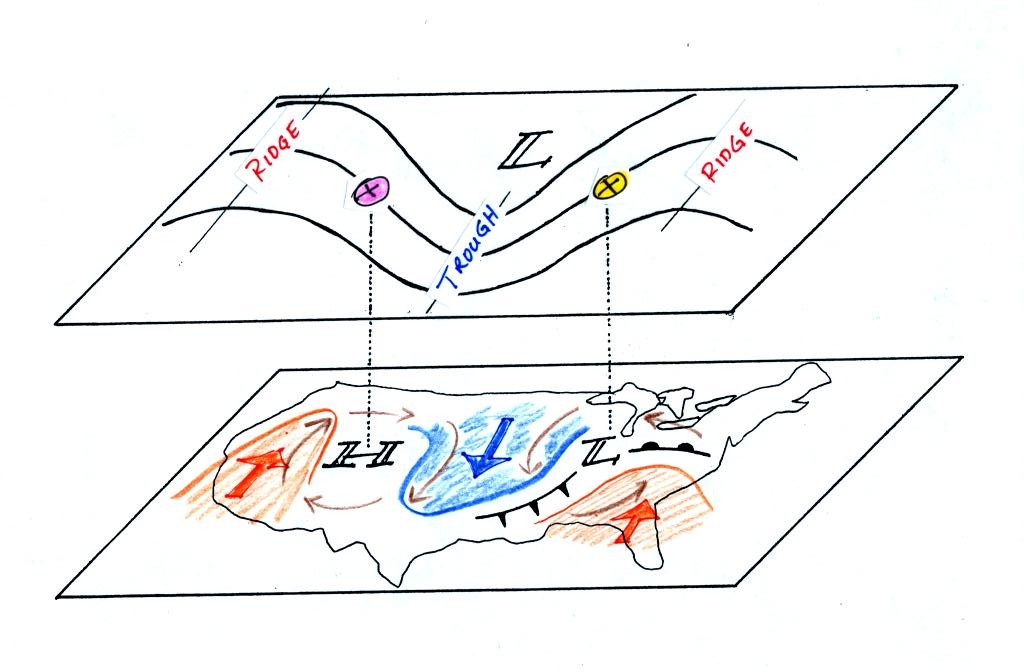 RIDGE
L
RIDGE
TROUGH
H
L